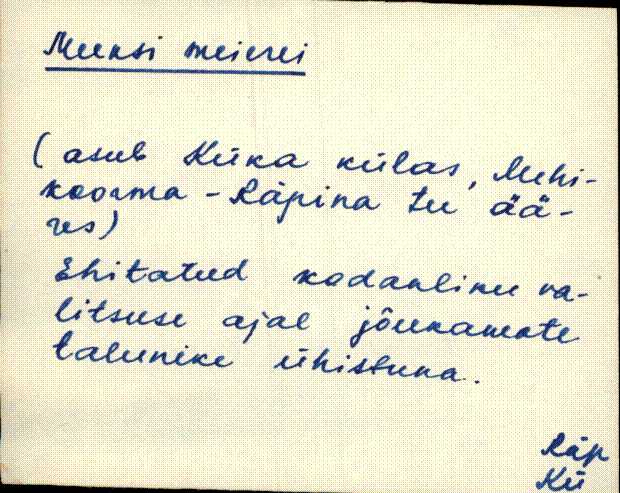 Meeksi meierei
(asub Küka külas, Mehi-
koorma - Räpina tee ää-
res)
Ehitatud kodanliku va-
litsuse ajal jõukamate
talunike ühistuna.
Räp
Kü